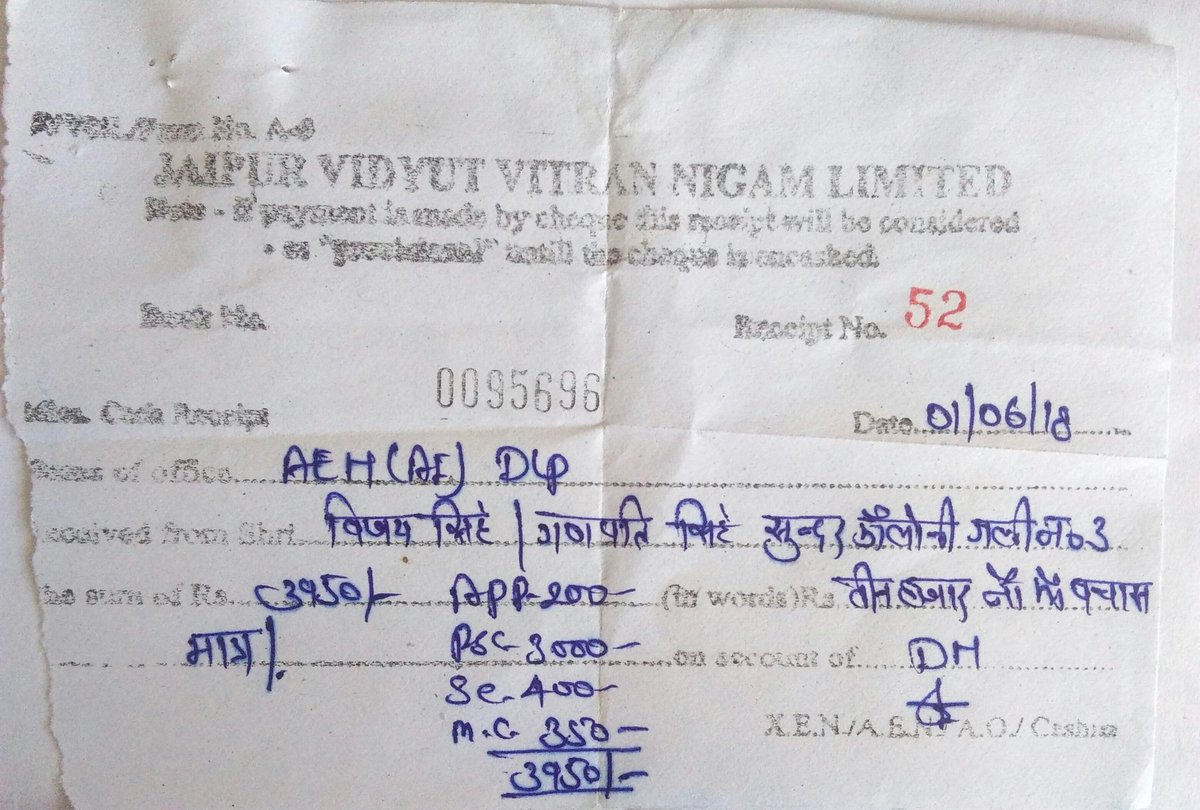 JVVNL/Form No. A-9
JAIPUR VIDYUT VITRAN NIGAM LIMITED
Note - If payment is made by cheque this receipt will be considered
as "provisional" untill the cheque is encashed.
Book No.
Receipt No. 52
0095696
Misc. Cash Receipt
Date 01/06/18
Name of office AEH (AE) DLP
Received from Shri विजय सिंह / गणपति सिंह सुन्दर कॉलोनी गली न० 3
the sum of Rs. 3950/- APP-200- (in words) Rs तीन हजार नौ सौ पचास
मात्र/. PSC-3000- on account of DH
Se.-400-
M.C. 350-
X.E.N./A.E.N./A.O./ Cashier
3950/-